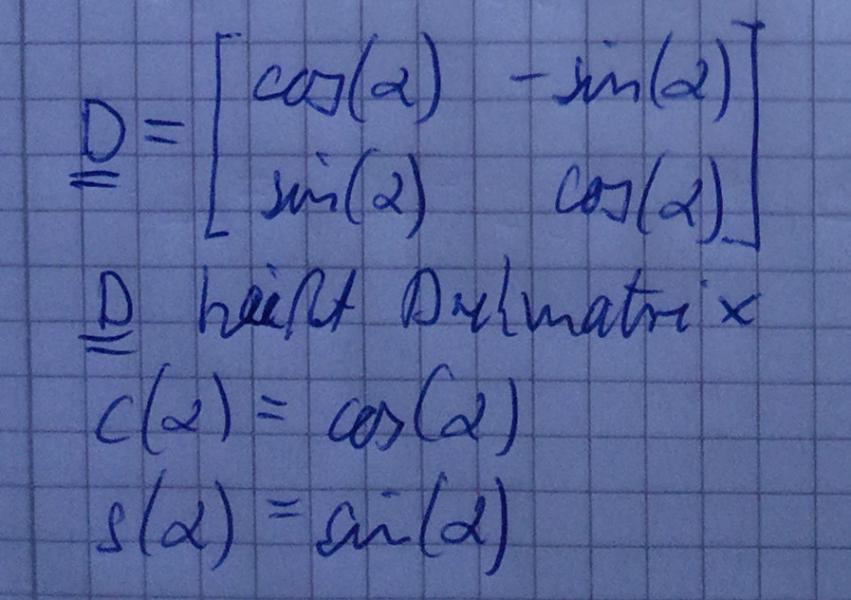 D = [ cos(α) -sin(α)
sin(α) cos(α) ]
D heißt Drehmatrix
c(α) = cos(α)
s(α) = sin(α)